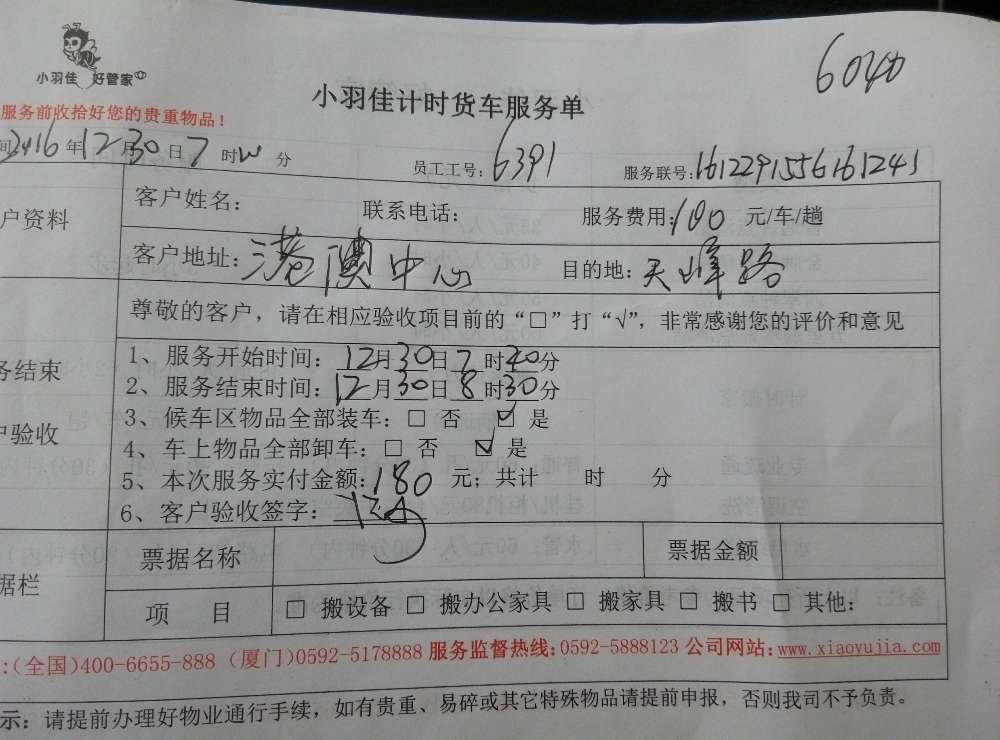 小羽佳 好管家
6040
小羽佳计时货车服务单
服务前收拾好您的贵重物品！
间2016年12月30日7时 分 员工工号：6391 服务联号：1612291556161241
户资料 客户姓名： 联系电话： 服务费用：180 元/车/趟
客户地址：港澳中心 目的地：天峰路
尊敬的客户，请在相应验收项目前的“□”打“√”，非常感谢您的评价和意见
务结束
户验收
1、服务开始时间：12月30日7时40分
2、服务结束时间：12月30日8时30分
3、候车区物品全部装车：□ 否 ☑ 是
4、车上物品全部卸车：□ 否 ☑ 是
5、本次服务实付金额：180 元；共计 时 分
6、客户验收签字：
据栏 票据名称 票据金额
项 目 □ 搬设备 □ 搬办公家具 □ 搬家具 □ 搬书 □ 其他：
:(全国)400-6655-888 (厦门)0592-5178888 服务监督热线:0592-5888123 公司网站:www.xiaoyujia.com
示：请提前办理好物业通行手续，如有贵重、易碎或其它特殊物品请提前申报，否则我司不予负责。